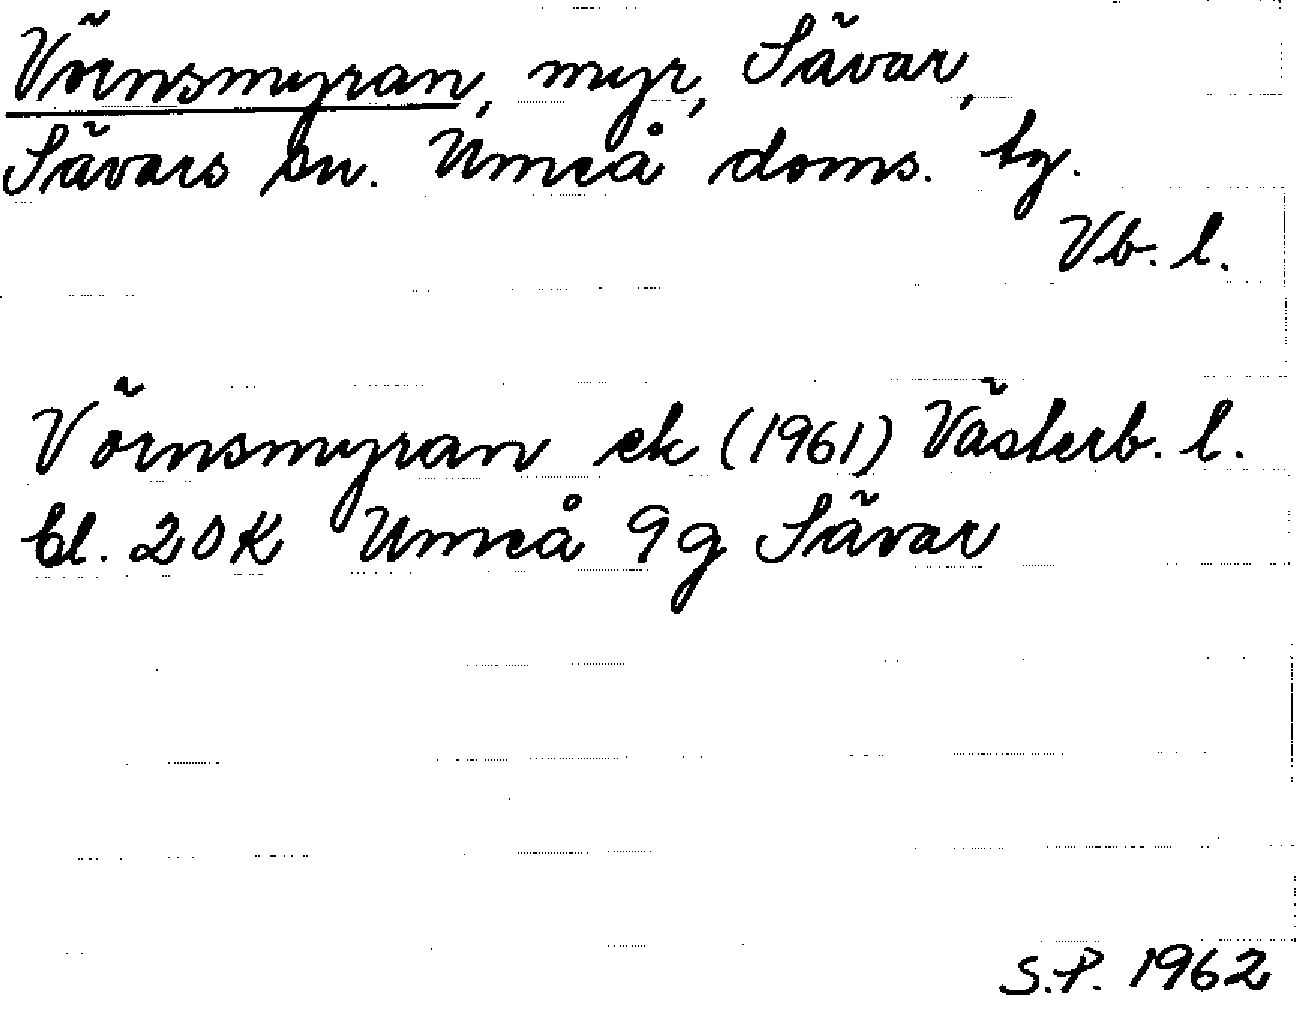 Vörnsmyran, myr, Sävar,
Sävars sn. Umeå doms. tg.
Vb. l.
Vörnsmyran ek (1961) Västerb. l.
bl. 20K Umeå 9g Sävar
S.P. 1962